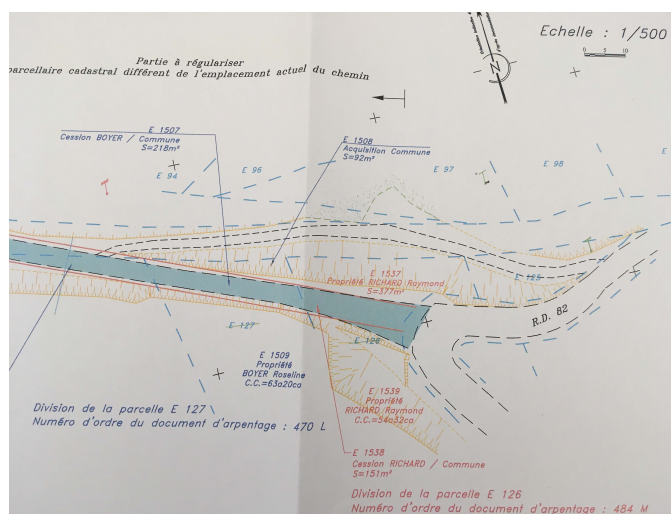 Echelle : 1/500
0 5 10
N
Partie à régulariser
parcellaire cadastral différent de l'emplacement actuel du chemin
E 1507
Cession BOYER / Commune
S=218m²
E 1508
Acquisition Commune
S=92m²
E 94
E 96
E 97
E 98
E
E 1537
Propriété RICHARD Raymond
S=377m²
E 125
R.D. 82
E 127
E 126
E 1509
Propriété
BOYER Roseline
C.C.=63a20ca
E 1539
Propriété
RICHARD Raymond
C.C.=54a32ca
Division de la parcelle E 127
Numéro d'ordre du document d'arpentage : 470 L
E 1538
Cession RICHARD / Commune
S=151m²
Division de la parcelle E 126
Numéro d'ordre du document d'arpentage : 484 M